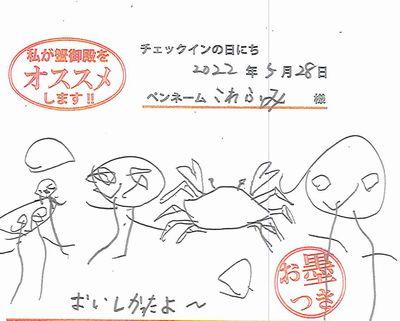 私が蟹御殿を
オススメ
します!!
チェックインの日にち
2022 年 5 月 28 日
ペンネーム これふみ 様
お墨
つき
おいしかたよ～